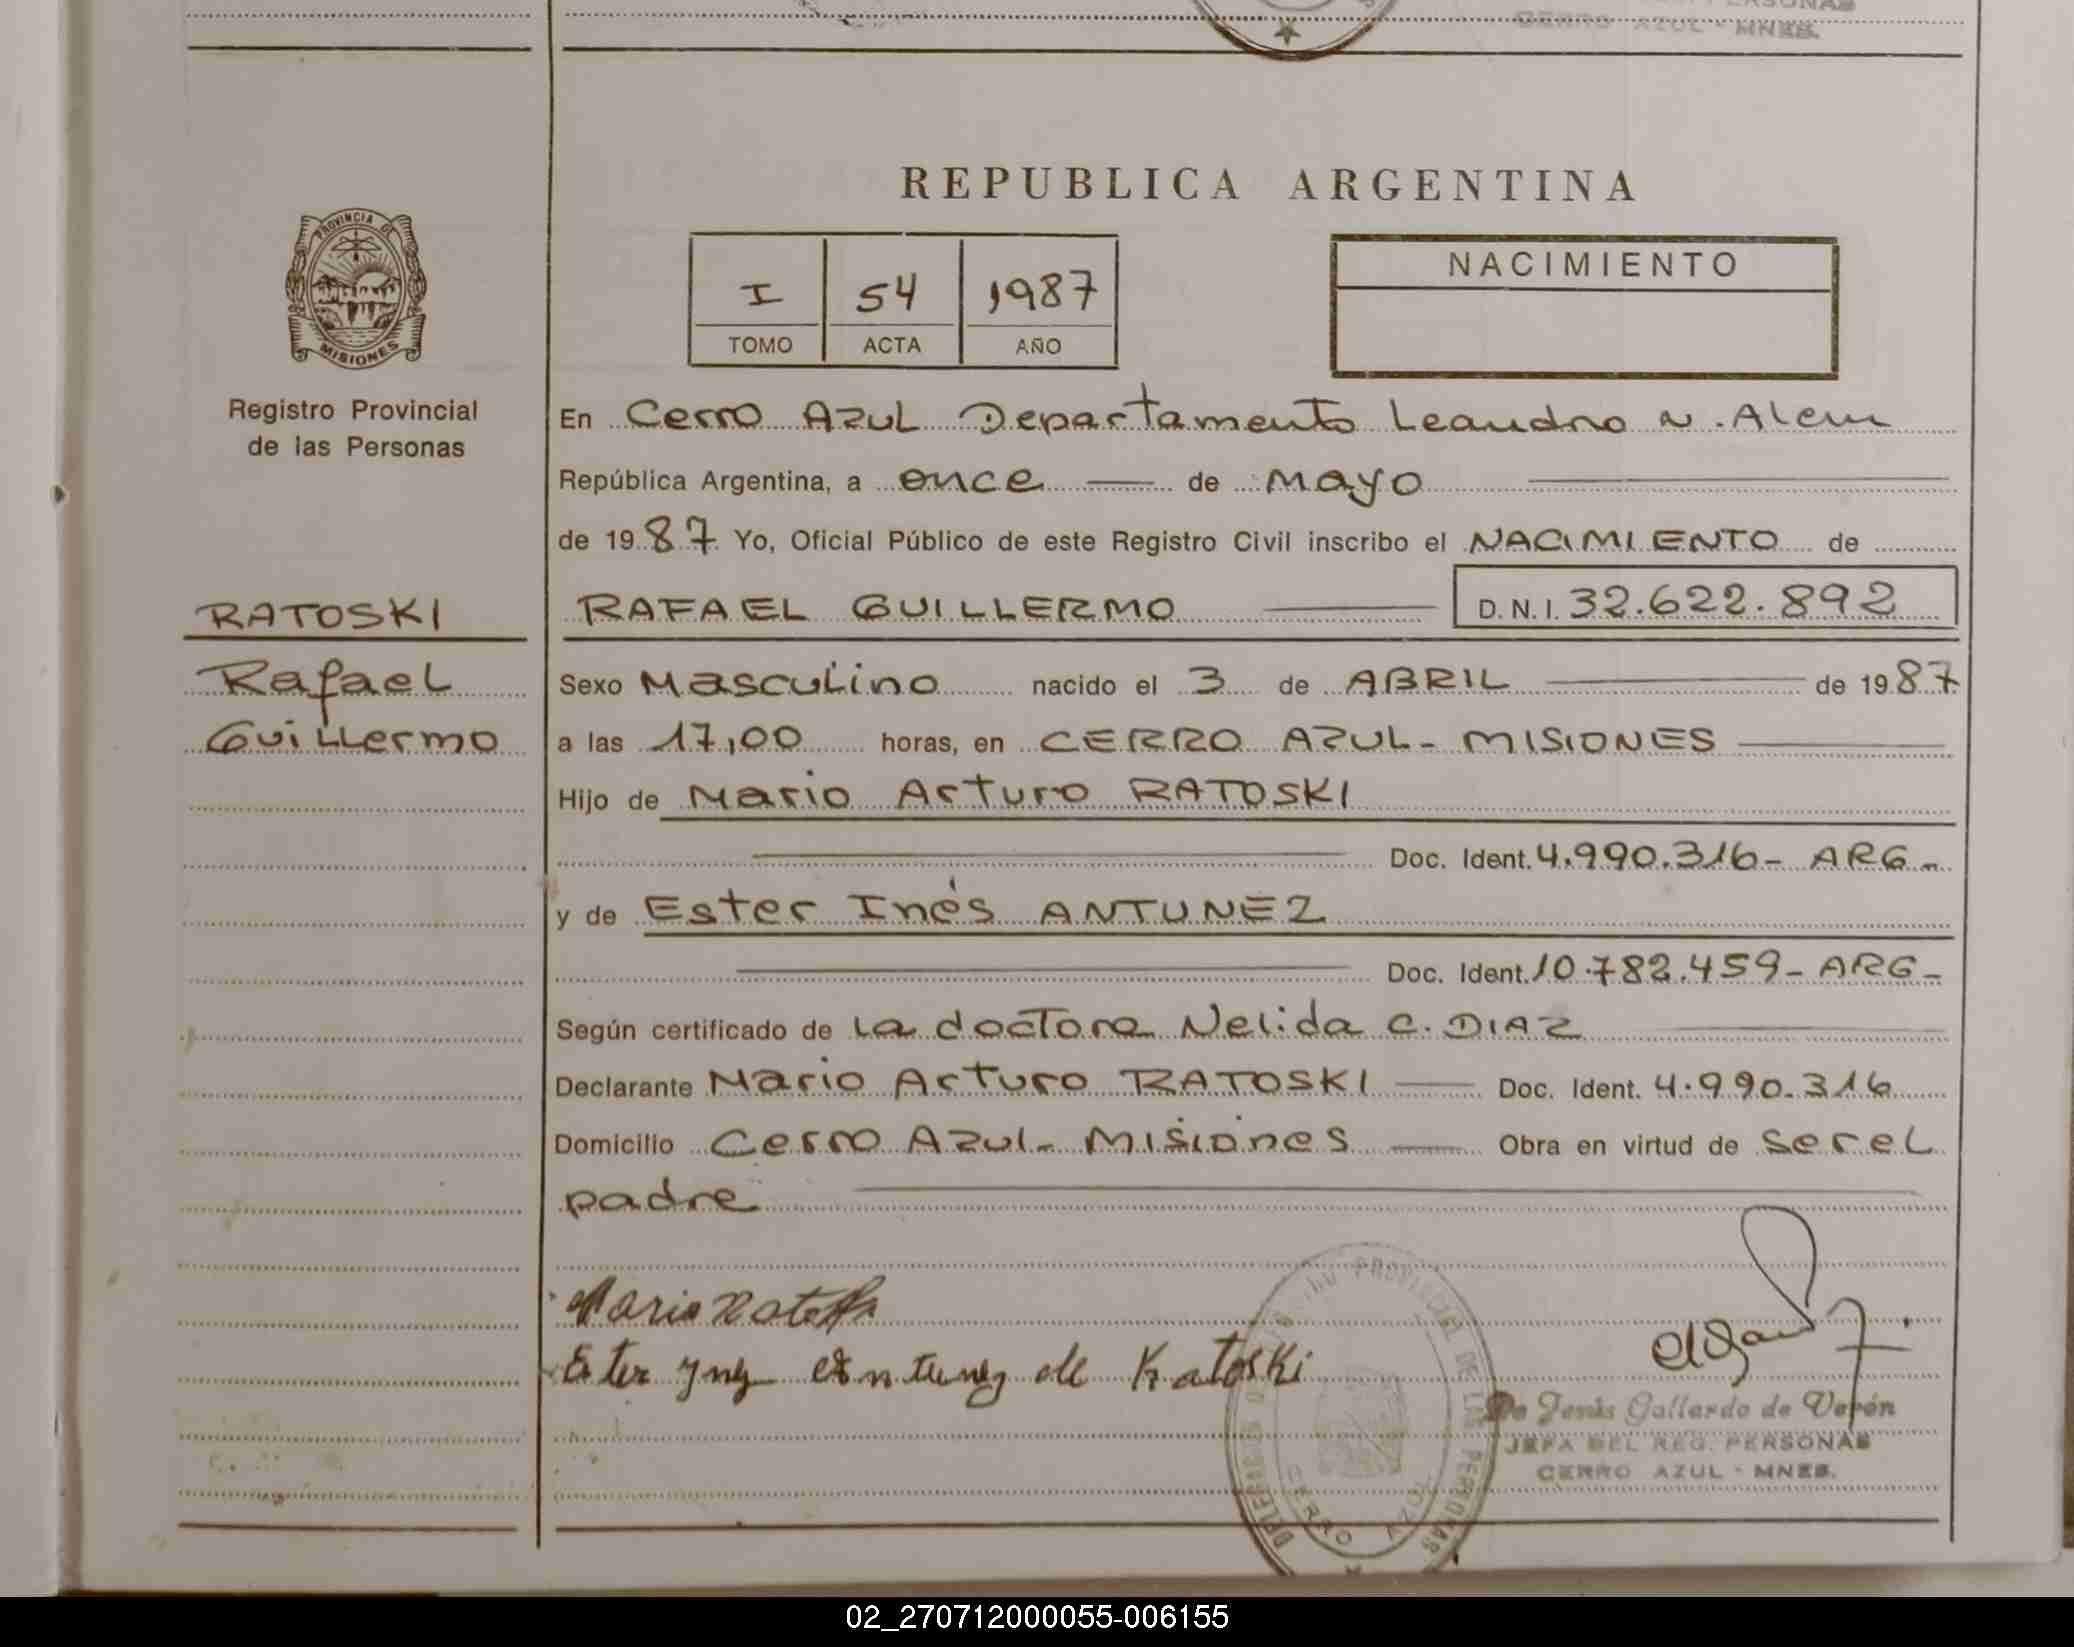 PERSONAS
CERRO AZUL - MNES.
REPUBLICA ARGENTINA
PROVINCIA DE
MISIONES
Registro Provincial
de las Personas
I 54 1987
TOMO ACTA AÑO
NACIMIENTO
En Cerro Azul Departamento Leandro N. Alem
República Argentina, a once de mayo
de 1987 Yo, Oficial Público de este Registro Civil inscribo el NACIMIENTO de
RATOSKI
RAFAEL GUILLERMO D.N.I. 32.622.892
Rafael
Sexo Masculino nacido el 3 de ABRIL de 1987
Guillermo
a las 17,00 horas, en CERRO AZUL - MISIONES
Hijo de Mario Arturo RATOSKI
Doc. Ident. 4.990.316 - ARG -
y de Ester Inés ANTUNEZ
Doc. Ident. 10.782.459 - ARG -
Según certificado de la doctora Nelida C. DIAZ
Declarante Mario Arturo RATOSKI Doc. Ident. 4.990.316
Domicilio Cerro Azul - Misiones Obra en virtud de ser el
padre
Mario
Ester Ynez Antunez de Ratoski
PROVINCIAL DE LAS PERSONAS
CERRO AZUL
Jesús Gallardo de Verón
JEFA DEL REG. PERSONAS
CERRO AZUL - MNES.
02_270712000055-006155